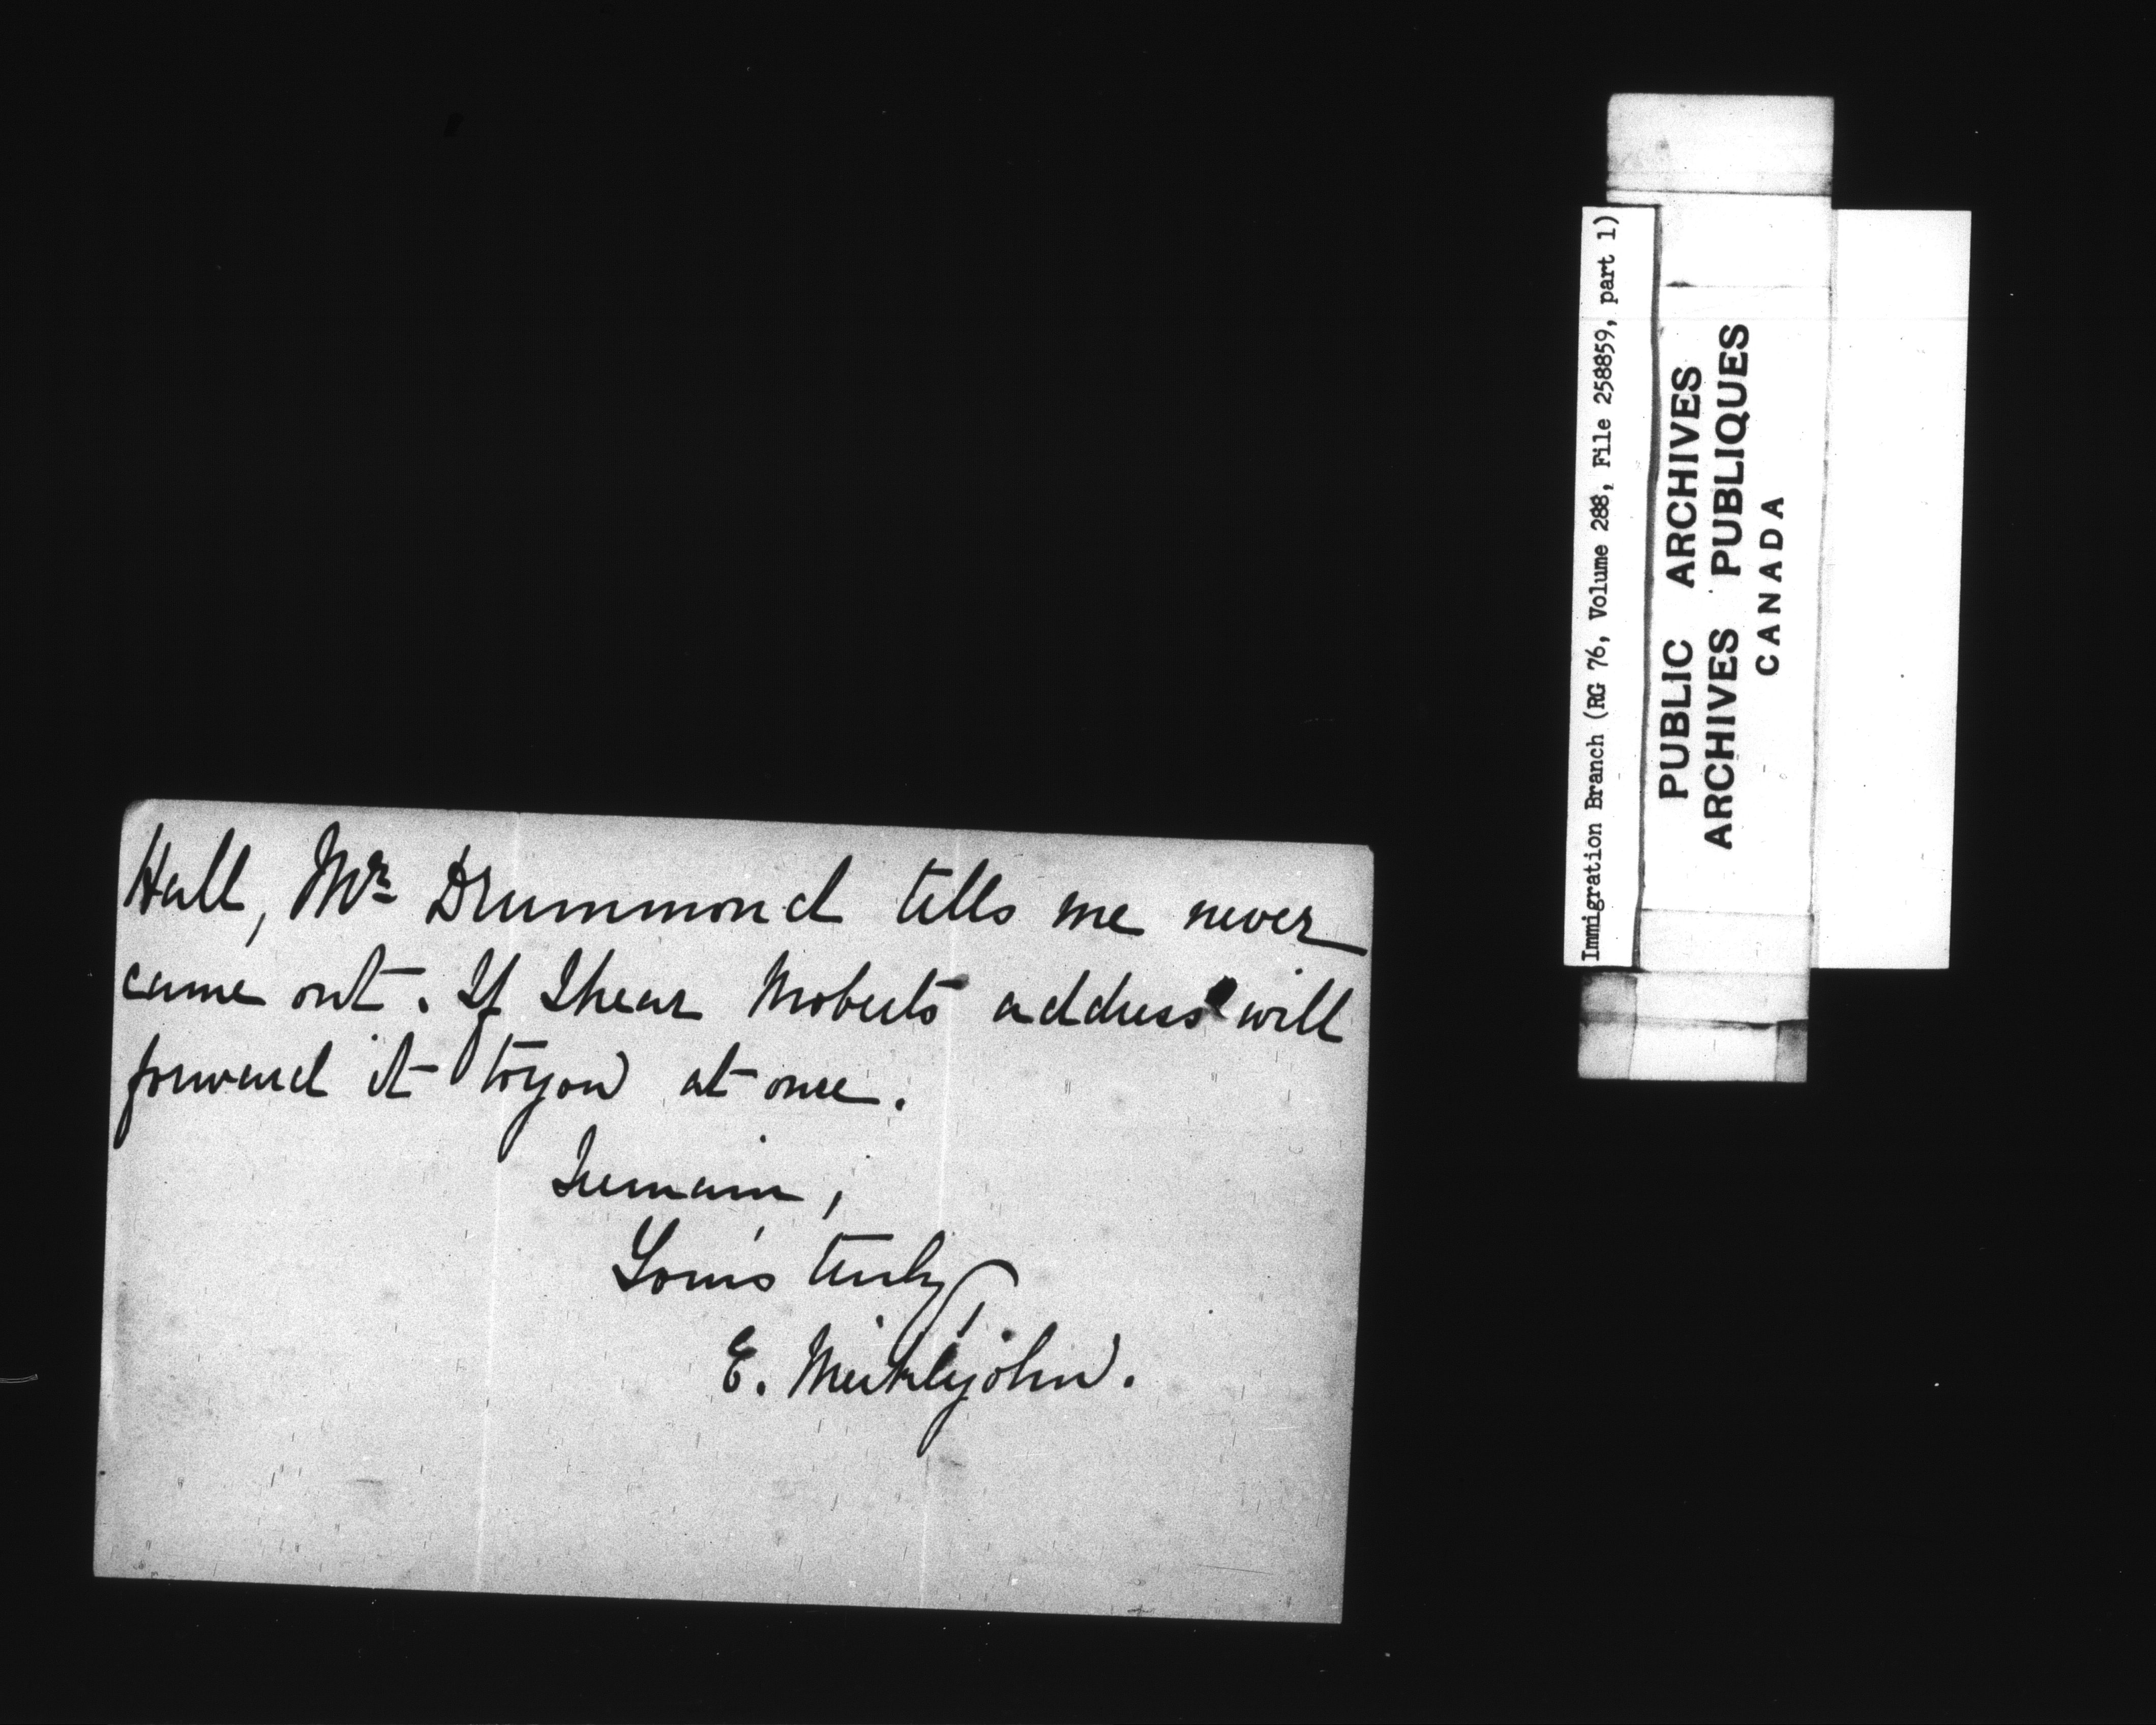 Hall, Mr Drummond tells me never
came out. If I hear Moberts address will
forward it to you at once.
I remain,
Yours truly,
E. Meiklejohn.
Immigration Branch (RG 76, Volume 288, File 258859, part 1)
PUBLIC ARCHIVES
ARCHIVES PUBLIQUES
CANADA